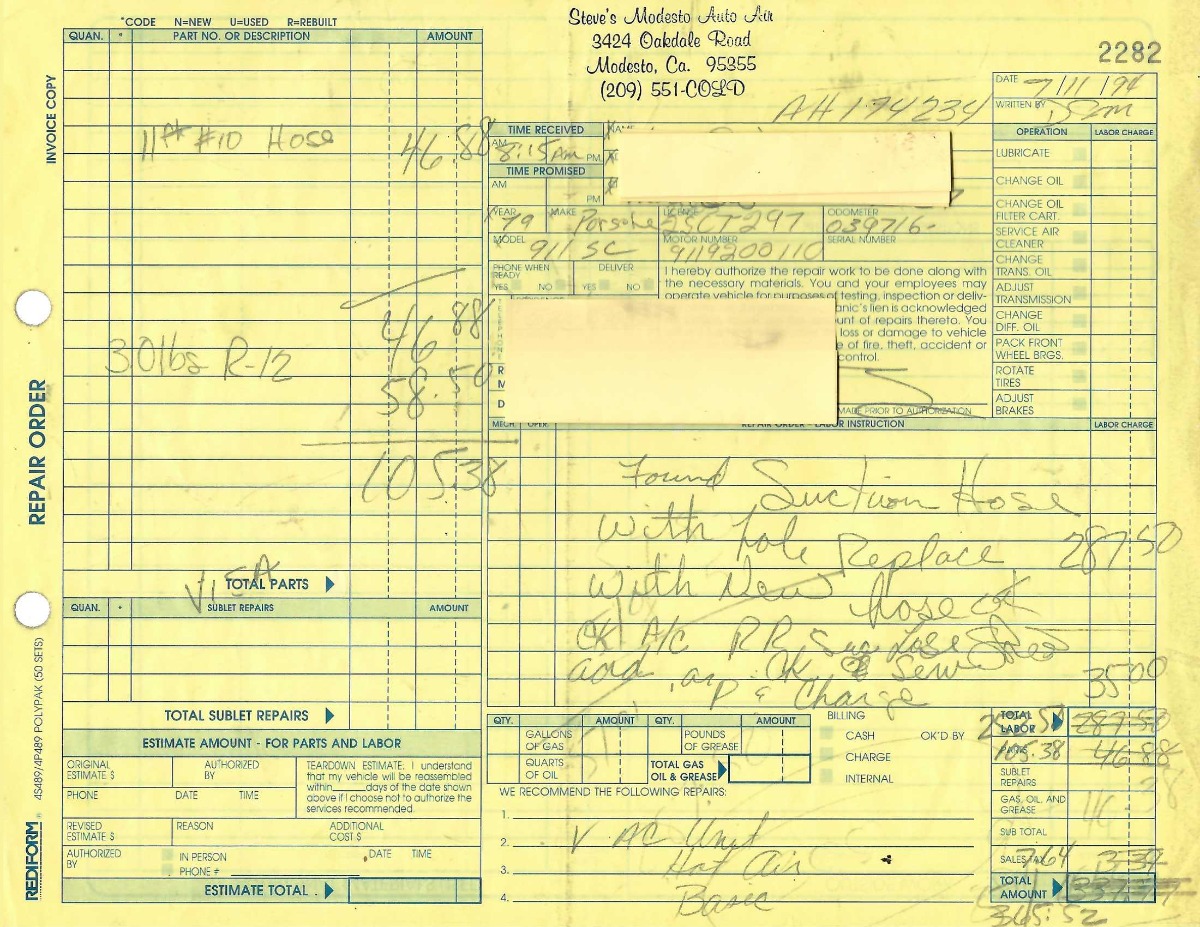 *CODE N=NEW U=USED R=REBUILT
Steve's Modesto Auto Air
3424 Oakdale Road
Modesto, Ca. 95355
(209) 551-COLD
2282
INVOICE COPY
QUAN. * PART NO. OR DESCRIPTION AMOUNT
11ft #10 Hose 46.88
46.88
3.0lbs R-12
58.50
105.38
VISA
TOTAL PARTS
QUAN. * SUBLET REPAIRS AMOUNT
TOTAL SUBLET REPAIRS
ESTIMATE AMOUNT - FOR PARTS AND LABOR
ORIGINAL ESTIMATE $ AUTHORIZED BY
PHONE DATE TIME
TEARDOWN ESTIMATE. I understand
that my vehicle will be reassembled
within____days of the date shown
above if I choose not to authorize the
services recommended.
REVISED ESTIMATE $ REASON ADDITIONAL COST $
AUTHORIZED BY IN PERSON DATE TIME
PHONE #
ESTIMATE TOTAL
REPAIR ORDER
REDIFORM ® 4S489/4P489 POLYPAK (50 SETS)
DATE 7/11/94
WRITTEN BY
AH174234
TIME RECEIVED
AM 8:15am PM
TIME PROMISED
AM
PM
YEAR 79 MAKE Porsche LICENSE 2SCT297 ODOMETER 039716-
MODEL 911 SC MOTOR NUMBER 9119200110 SERIAL NUMBER
PHONE WHEN READY YES NO DELIVER YES NO
I hereby authorize the repair work to be done along with
the necessary materials. You and your employees may
operate vehicle for purposes of testing, inspection or deliv-
anic's lien is acknowledged
unt of repairs thereto. You
loss or damage to vehicle
e of fire, theft, accident or
control.
MADE PRIOR TO AUTHORIZATION
OPERATION LABOR CHARGE
LUBRICATE
CHANGE OIL
CHANGE OIL FILTER CART.
SERVICE AIR CLEANER
CHANGE TRANS. OIL
ADJUST TRANSMISSION
CHANGE DIFF. OIL
PACK FRONT WHEEL BRGS.
ROTATE TIRES
ADJUST BRAKES
MECH. OPER. REPAIR ORDER - LABOR INSTRUCTION LABOR CHARGE
Found Suction Hose
With hole Replace 287.50
With New hose
OK A/C RR
add OK Sew
& Charge 35.00
QTY. AMOUNT QTY. AMOUNT
GALLONS OF GAS POUNDS OF GREASE
QUARTS OF OIL TOTAL GAS OIL & GREASE
BILLING
CASH OK'D BY
CHARGE
INTERNAL
WE RECOMMEND THE FOLLOWING REPAIRS:
1.
2. V AC Unit
3. Hot Air
4. Basic
TOTAL LABOR 287.50
PARTS 105.38 46.88
SUBLET REPAIRS
GAS, OIL AND GREASE
SUB TOTAL
SALES TAX 7.64
TOTAL AMOUNT
365.52